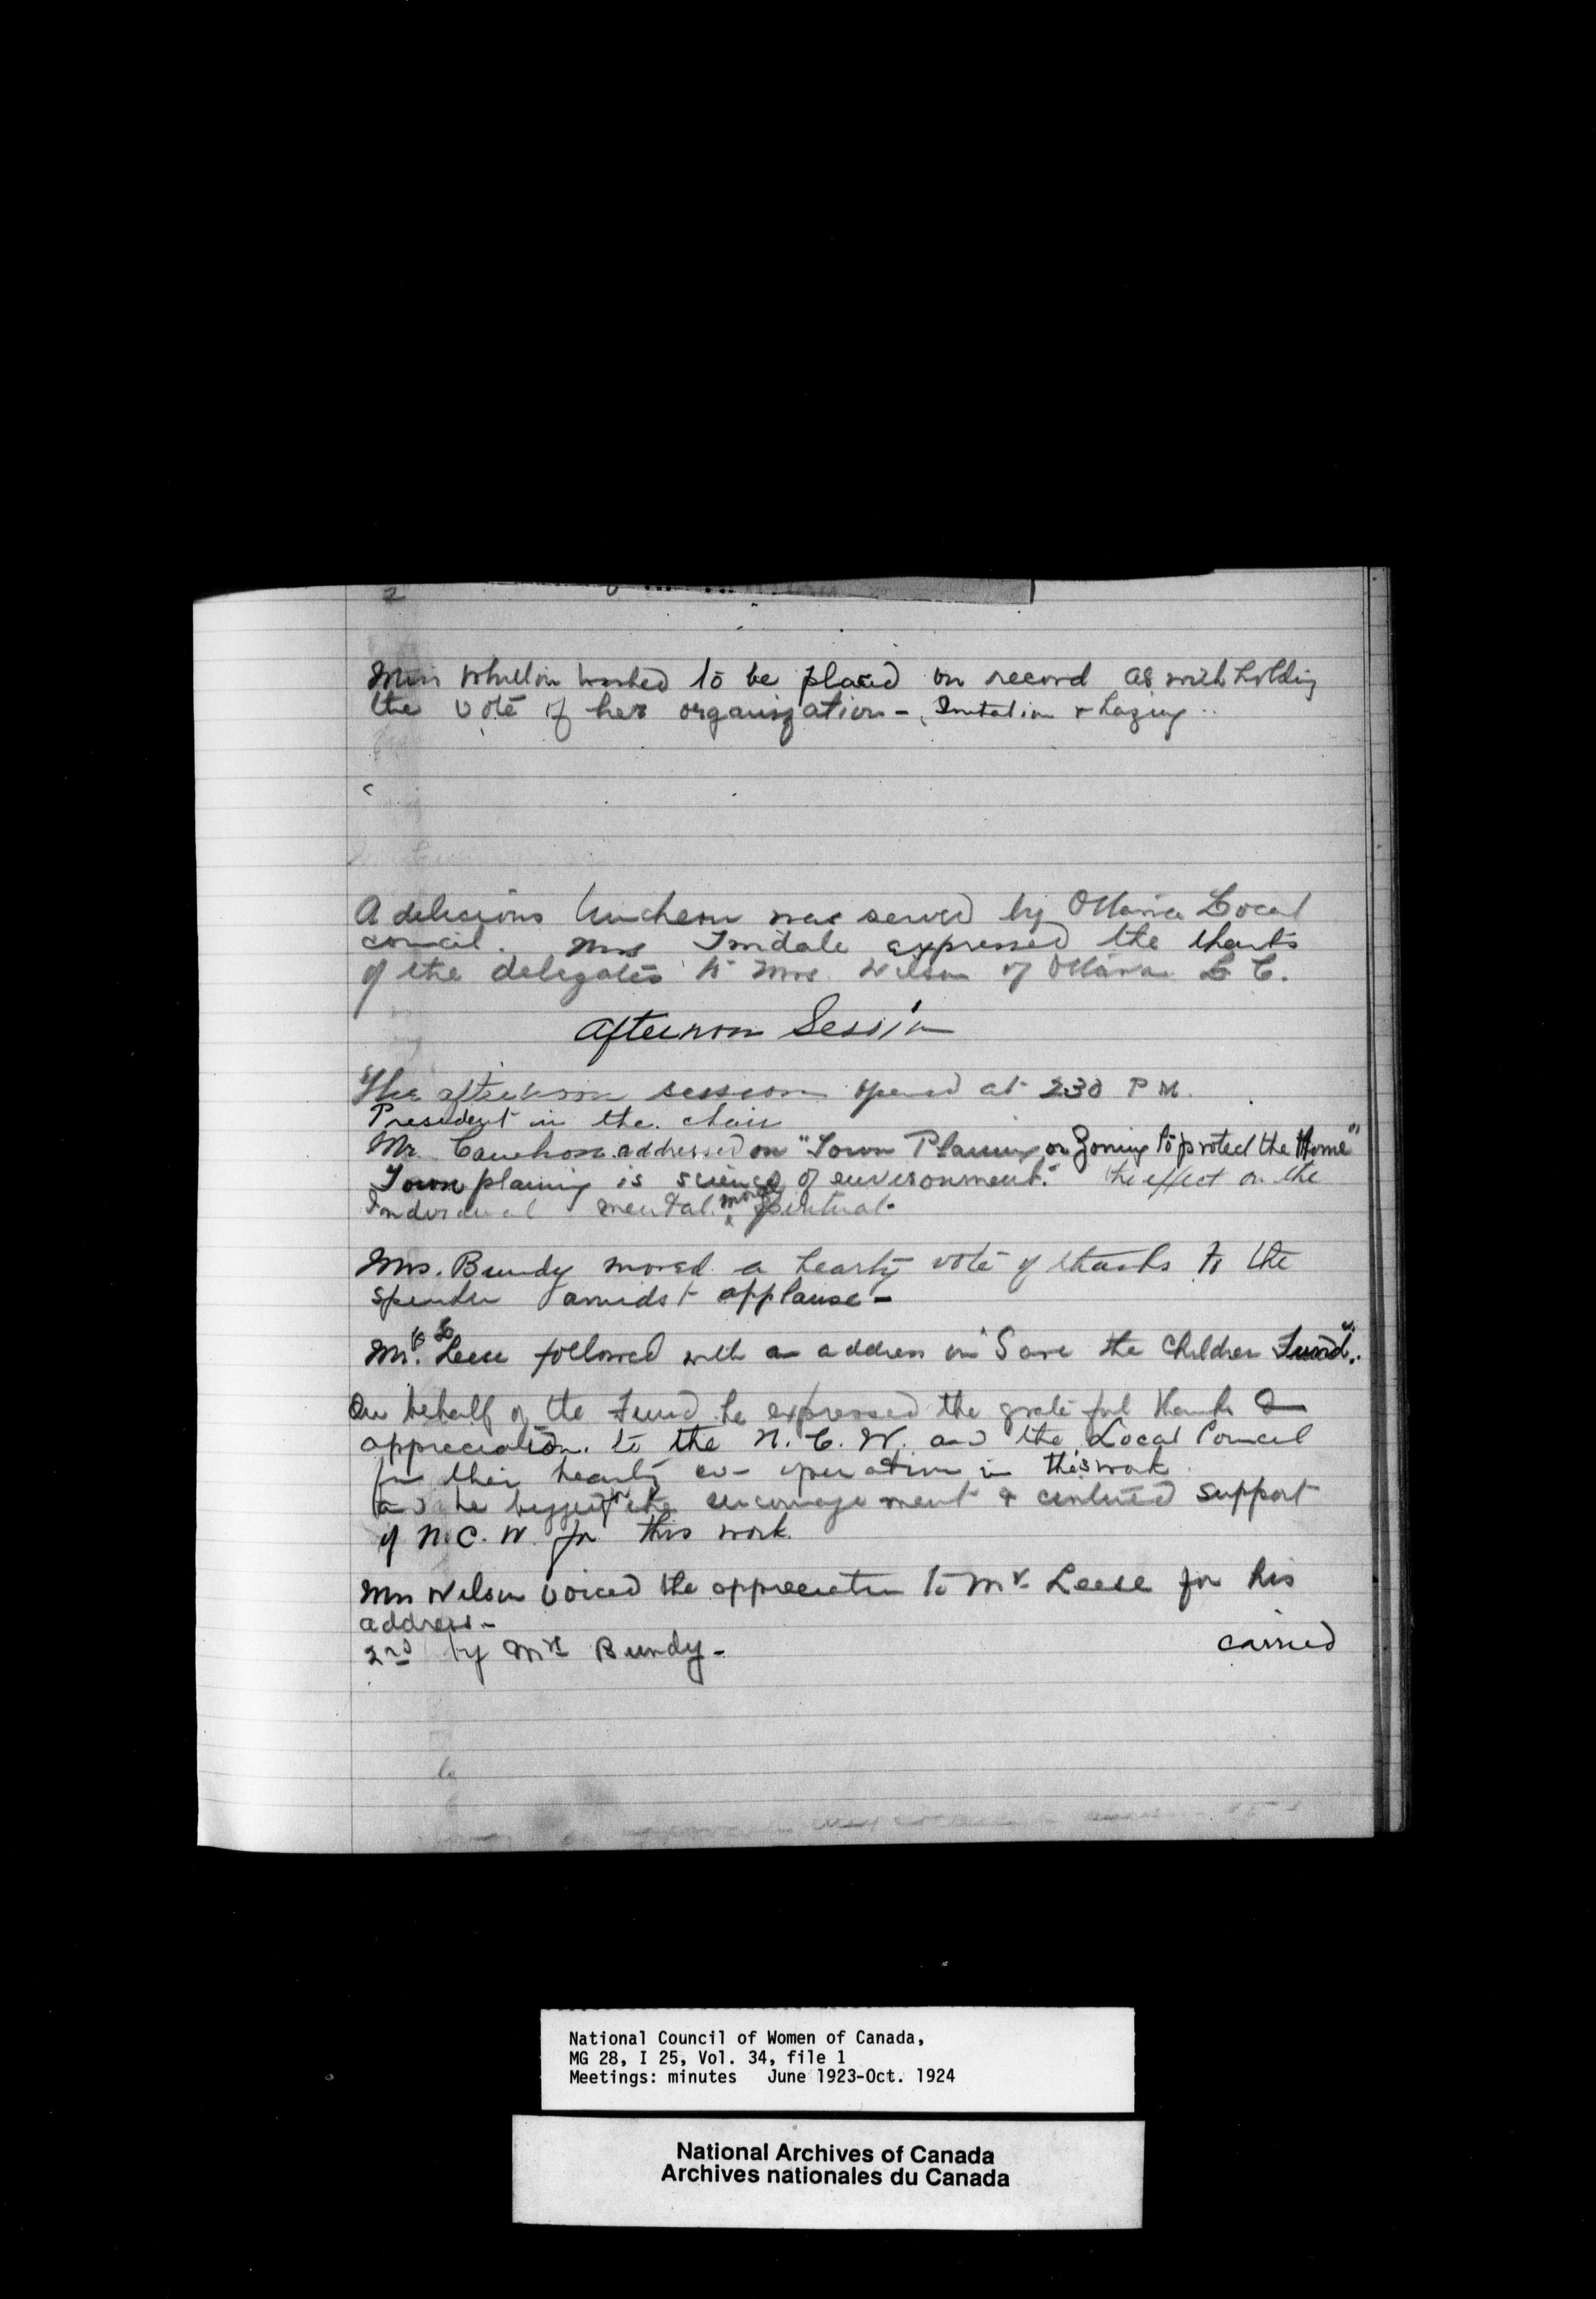 Miss Whitton wished to be placed on record as withholding
the vote of her organization - Initation & hazing
A delicious luncheon was served by Ottawa Local
council. Mrs Tindale expressed the thanks
of the delegates to Mrs. Wilson of Ottawa L C.
Afternoon Session
The afternoon session opened at 230 P M.
President in the chair
Mr. addressed on "Town Planing or Zoning to protect the Home"
Town planing is science of environment." the effect on the
Individual mental. moral spiritual.
Mrs. Bundy moved a hearty vote of thanks to the
speaker amidst applause -
Mr. Leese followed with a address on "Save the Children Fund".
On behalf of the Fund he expressed the grateful thanks &
appreciation. to the N. C. W. and the Local Council
for their hearty co-operation in this work
and he begged for the encouragement & continued support
of N. C. W. for this work.
Mrs Wilson voiced the appreciation to Mr. Leese for his
address -
2nd by Mrs Bundy - carried
National Council of Women of Canada,
MG 28, I 25, Vol. 34, file 1
Meetings: minutes June 1923-Oct. 1924
National Archives of Canada
Archives nationales du Canada